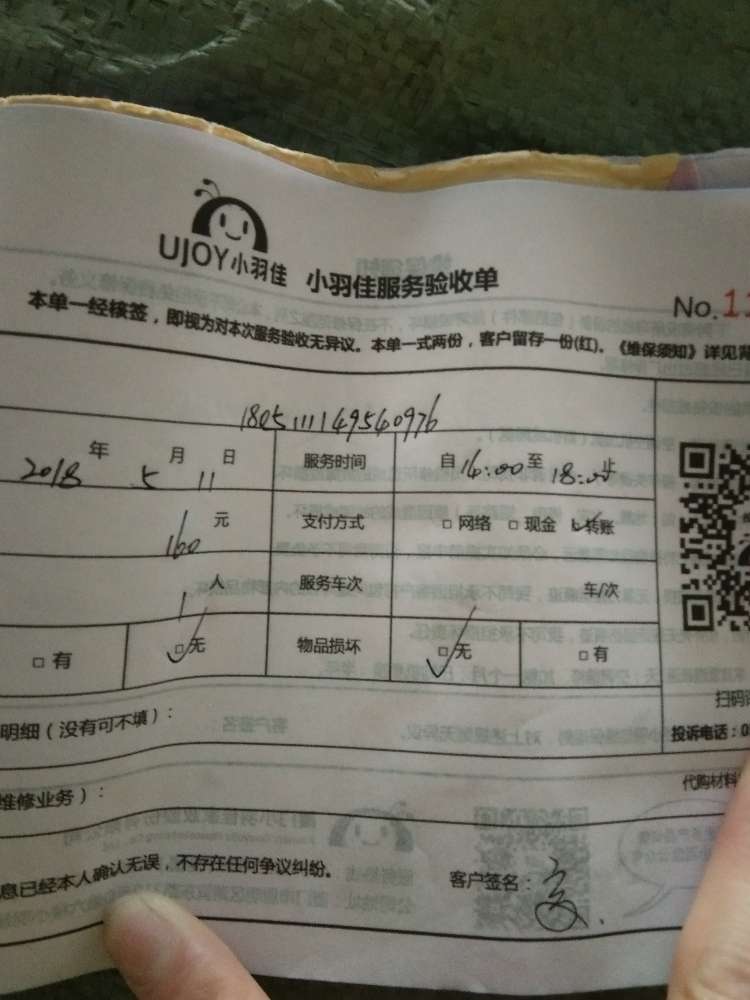 UJOY小羽佳 小羽佳服务验收单
No.1
本单一经核签，即视为对本次服务验收无异议。本单一式两份，客户留存一份(红)。《维保须知》详见背
180511149540976
2018年 5月 11日 服务时间 自16:00至18:00止
160元 支付方式 □网络 □现金 □转账
1人 服务车次 车/次
□有 □无 物品损坏 □无 □有
明细（没有可不填）：
扫码
投诉电话：0
维修业务）：
代购材料
息已经本人确认无误，不存在任何争议纠纷。 客户签名：